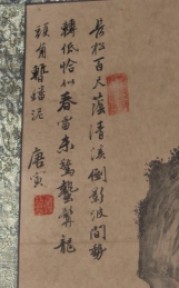 長松百尺蔭清溪倒影波間勢
轉低恰似春雷未驚蟄髯龍
頭角暫蟠泥
唐寅